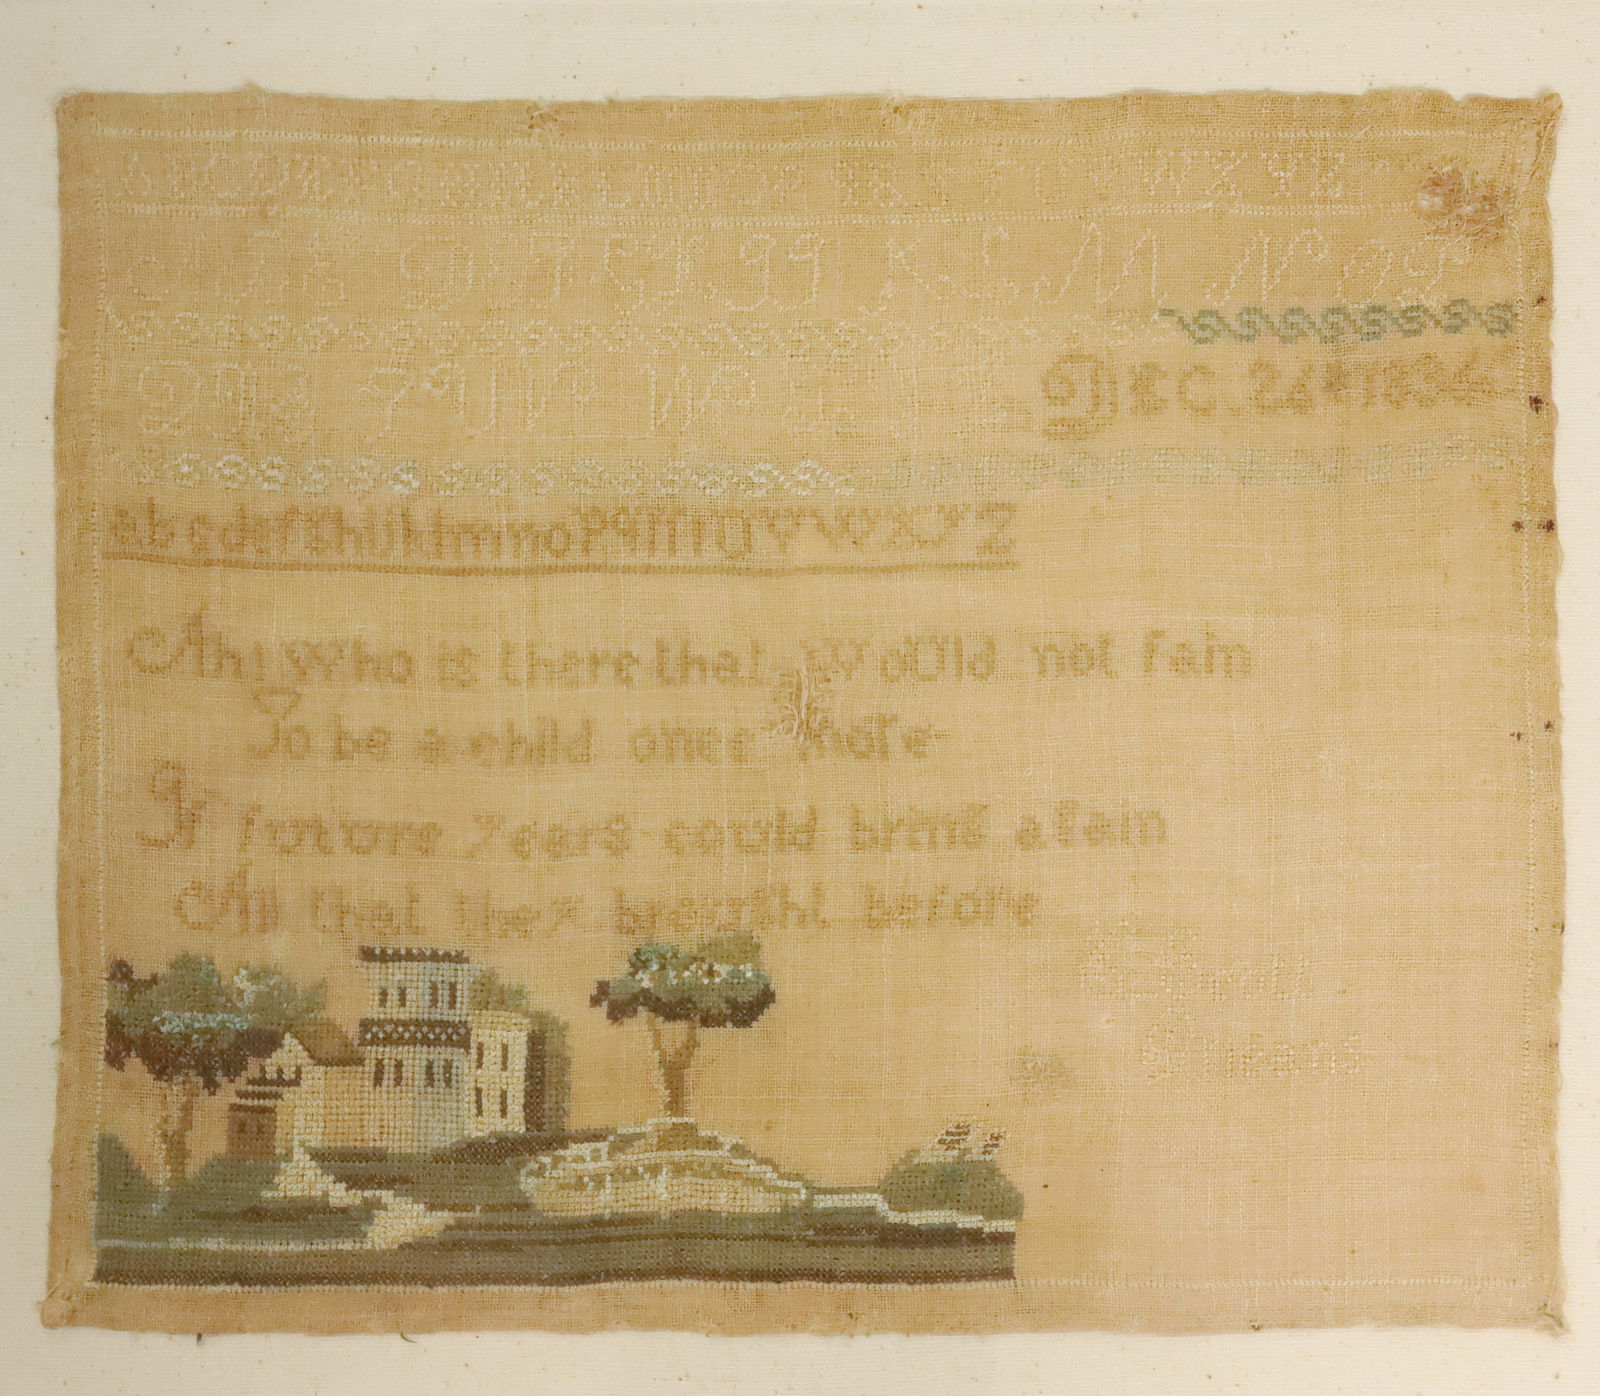 A B C D E F G H I J K L M N O P Q R S T U V W X Y Z
A B C D E F G H I J K L M N O P
Q R S T U V W
Dec. 24 1836
a b c d e f g h i j k l m n o p q r s t U V W X Y Z
Ah! Who is there that WoUld not fain
To be a child once more
If future Years could bring again
All that they brought before